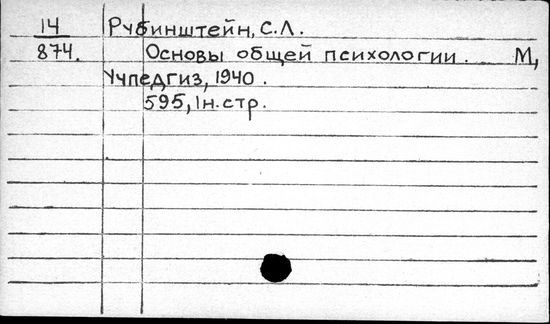 14 Рубинштейн, С.Л.
874. Основы общей психологии. М,
Учпедгиз, 1940.
595, 1н.стр.